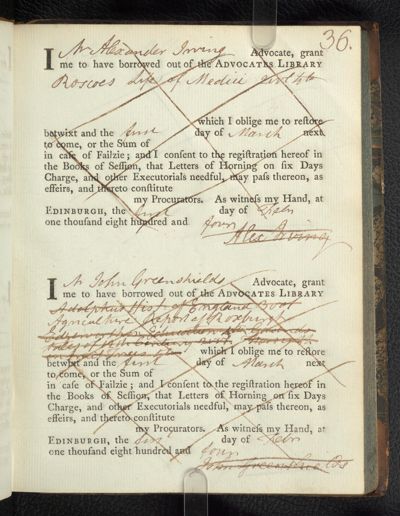 36.
I Mr Alexander Irving Advocate, grant
me to have borrowed out of the ADVOCATES LIBRARY
Roscoes Life of Medici
which I oblige me to restore
betwixt and the first day of March next,
to come, or the Sum of
in case of Failzie; and I consent to the registration hereof in
the Books of Session, that Letters of Horning on six Days
Charge, and other Executorials needful, may pass thereon, as
effeirs, and thereto constitute
my Procurators. As witness my Hand, at
EDINBURGH, the first day of Febr
one thousand eight hundred and four
Alex Irving
I Mr John Greenshields Advocate, grant
me to have borrowed out of the ADVOCATES LIBRARY
Adolphus Hist. of England
Agriculture Report of Roxburgh
which I oblige me to restore
betwixt and the first day of March next
to come, or the Sum of
in case of Failzie; and I consent to the registration hereof in
the Books of Session, that Letters of Horning on six Days
Charge, and other Executorials needful, may pass thereon, as
effeirs, and thereto constitute
my Procurators. As witness my Hand, at
EDINBURGH, the first day of Febr
one thousand eight hundred and four
John Greenshields